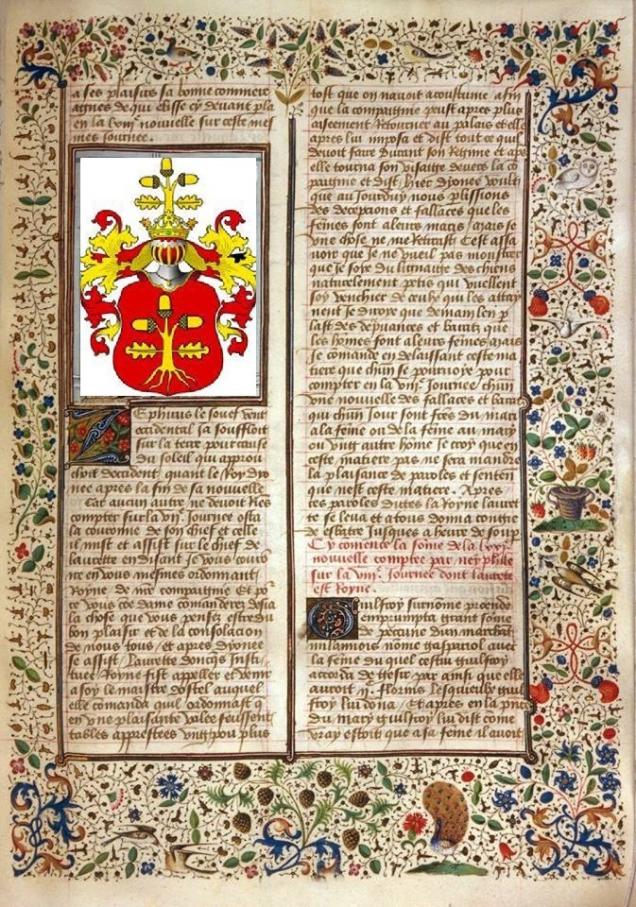 a ses plaisirs sa bonne commere
en la nouvelle sur ceste mes
mes journee.
Zephirus le souef vent
occidental ja souffloit
sur la terre pour cause
du soleil qui approu
choit doccident quant le Roy dyo
nee apres la fin de sa nouvelle
car aucun autre ne devoit nes
compter sur la vii journee osta
la couronne de son chief et celle
il mist et assist sur le chief de
laurette en disant Je vous couro
ne en vous mesmes ordonnant
Royne de nre compaignie Et po
re vous coe dame comanderez desia
la chose que vous pensez estre du
bon plaisir et de la consolacion
de nous tous. et apres dyonee
se assist laurette doncqs insti
tuee Royne fist appeller et venir
a soy le maistre dostel auquel
elle comanda quil ordonnast q
en une plaisante valee feussent
tables apprestees ung pou plus
tost que on navoit acoustume afin
que la compaignie peust apres plus
aiseement retourner au palais et elle
apres lui imposa et dist tout ce quil
devoit faire durant son regime et apres
elle tourna son visaige devers la co
paignie et dist hier dyonee voult
que au jourduy nous plissions
des decepcions et fallaces que les
femes font a leurs maris mais se
une chose ne me retraist cest assa
voir que je ne vueil pas monstrer
que je soye du lignaige des chiens
naturelement petis qui vuellent
soy venchier de ceulx qui les attay
nent je diroye que demain len p
last des decevances et baratz que
les homes font a leurs femes mais
je comande en delaissant ceste ma
tiere que chun se pourvoie pour
compter en la viii journee chun
une nouvelle des fallaces et barat
qui chun jour sont fees du mari
a la feme ou de la feme au mary
ou ung autre home je croy que en
ceste matiere pas ne sera maindre
la plaisance de paroles et sentenc
que nest ceste matiere. Apres
ces paroles dictes la Royne lauret
te se leva et a tous donna congie
de esbatre jusques a heure de soup
Cy comence la some de la
nouvelle comptee par neyphile
sur la viii journee dont laurete
est Royne.
Guilfroy surnome
emprumpta grant some
de pecune dun marchat
milannois nome gaspariol avec
la feme du quel cestui guilfroy
acorda de gesir par ainsi que elle
auroit florins lesqueilx guil
froy lui dona. Et apres en la pns
du mary guilfroy lui dist come
vray estoit que a sa feme il avoit